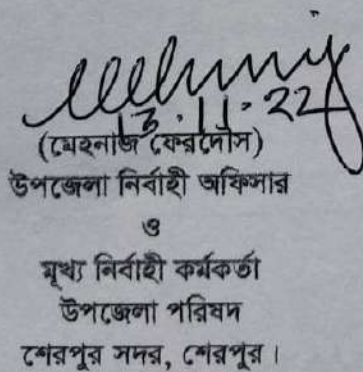 13.11.22
(মেহনাজ ফেরদৌস)
উপজেলা নির্বাহী অফিসার
ও
মূখ্য নির্বাহী কর্মকর্তা
উপজেলা পরিষদ
শেরপুর সদর, শেরপুর।